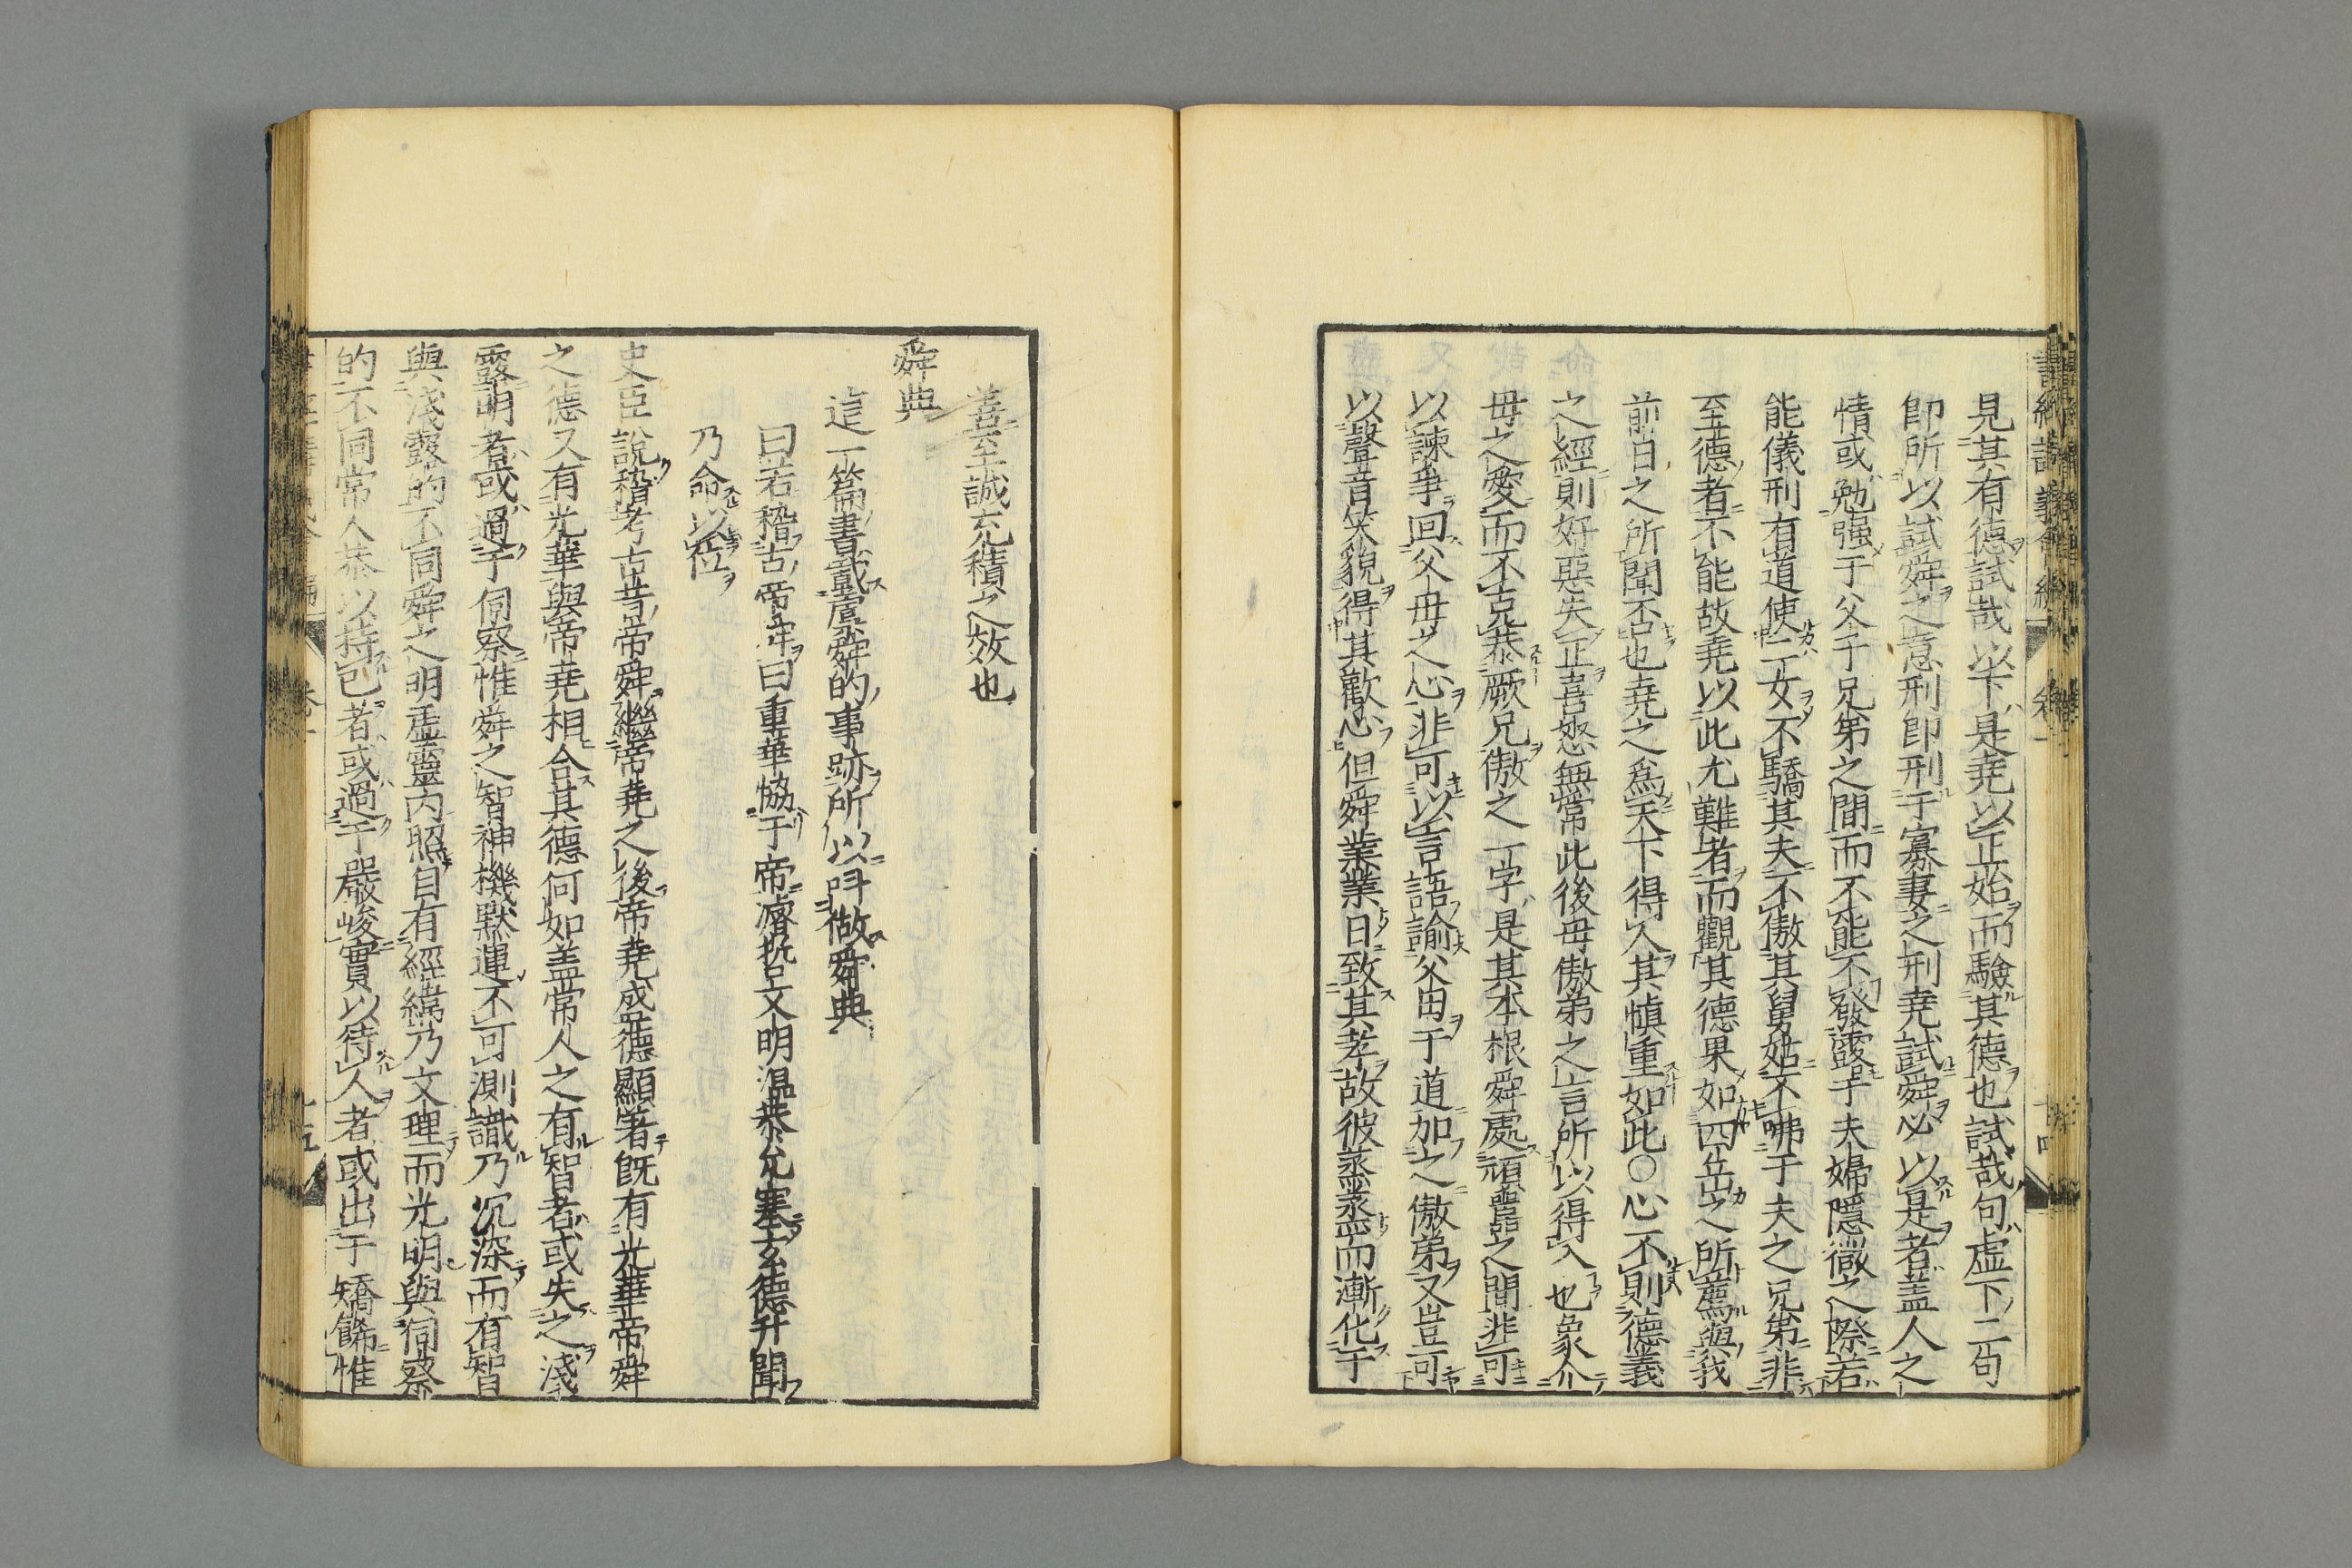 見其有德試哉以下是堯以正始而驗其德也試哉句虛下二句
卽所以試舜之意刑卽刑于寡妻之刑堯試舜必以是者蓋人之
情或勉强于父子兄弟之間而不能不發露于夫婦隱微之際若
能儀刑有道使二女不驕其夫不傲其舅姑不咈于夫之兄弟非
至德者不能故堯以此尤難者而觀其德果如四岳之所薦與我
前日之所聞否也堯之爲天下得人其愼重如此○心不則德義
之經則好惡失正喜怒無常此後母傲弟之言所以得入也象介
母之愛而不克恭厥兄傲之一字是其本根舜處頑嚚之間非可
以諫爭回父母之心非可以言語諭父母于道加之傲弟又豈可
以聲音笑貌得其歡心但舜業業日致其孝故彼蒸蒸而漸化于
善至誠充積之效也
舜典
這一篇書載虞舜的事跡所以叫做舜典
曰若稽古帝舜曰重華協于帝濬哲文明溫恭允塞玄德升聞
乃命以位
史臣說稽考古昔帝舜繼帝堯之後帝堯盛德顯著旣有光華帝舜
之德又有光華與帝堯相合其德何如蓋常人之有智者或失之淺
露明者或過于伺察惟舜之智神機默運不可測識乃沉深而有智
與淺露的不同舜之明虛靈內照自有經緯乃文理而光明與伺察
的不同常人恭以持己者或過于嚴峻實以待人者或出于矯飾惟